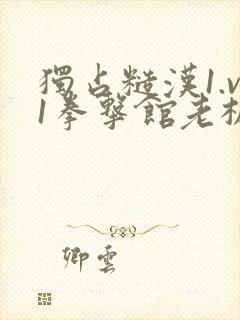 獨占糙漢1.v
1拳擊館老板
卿雲